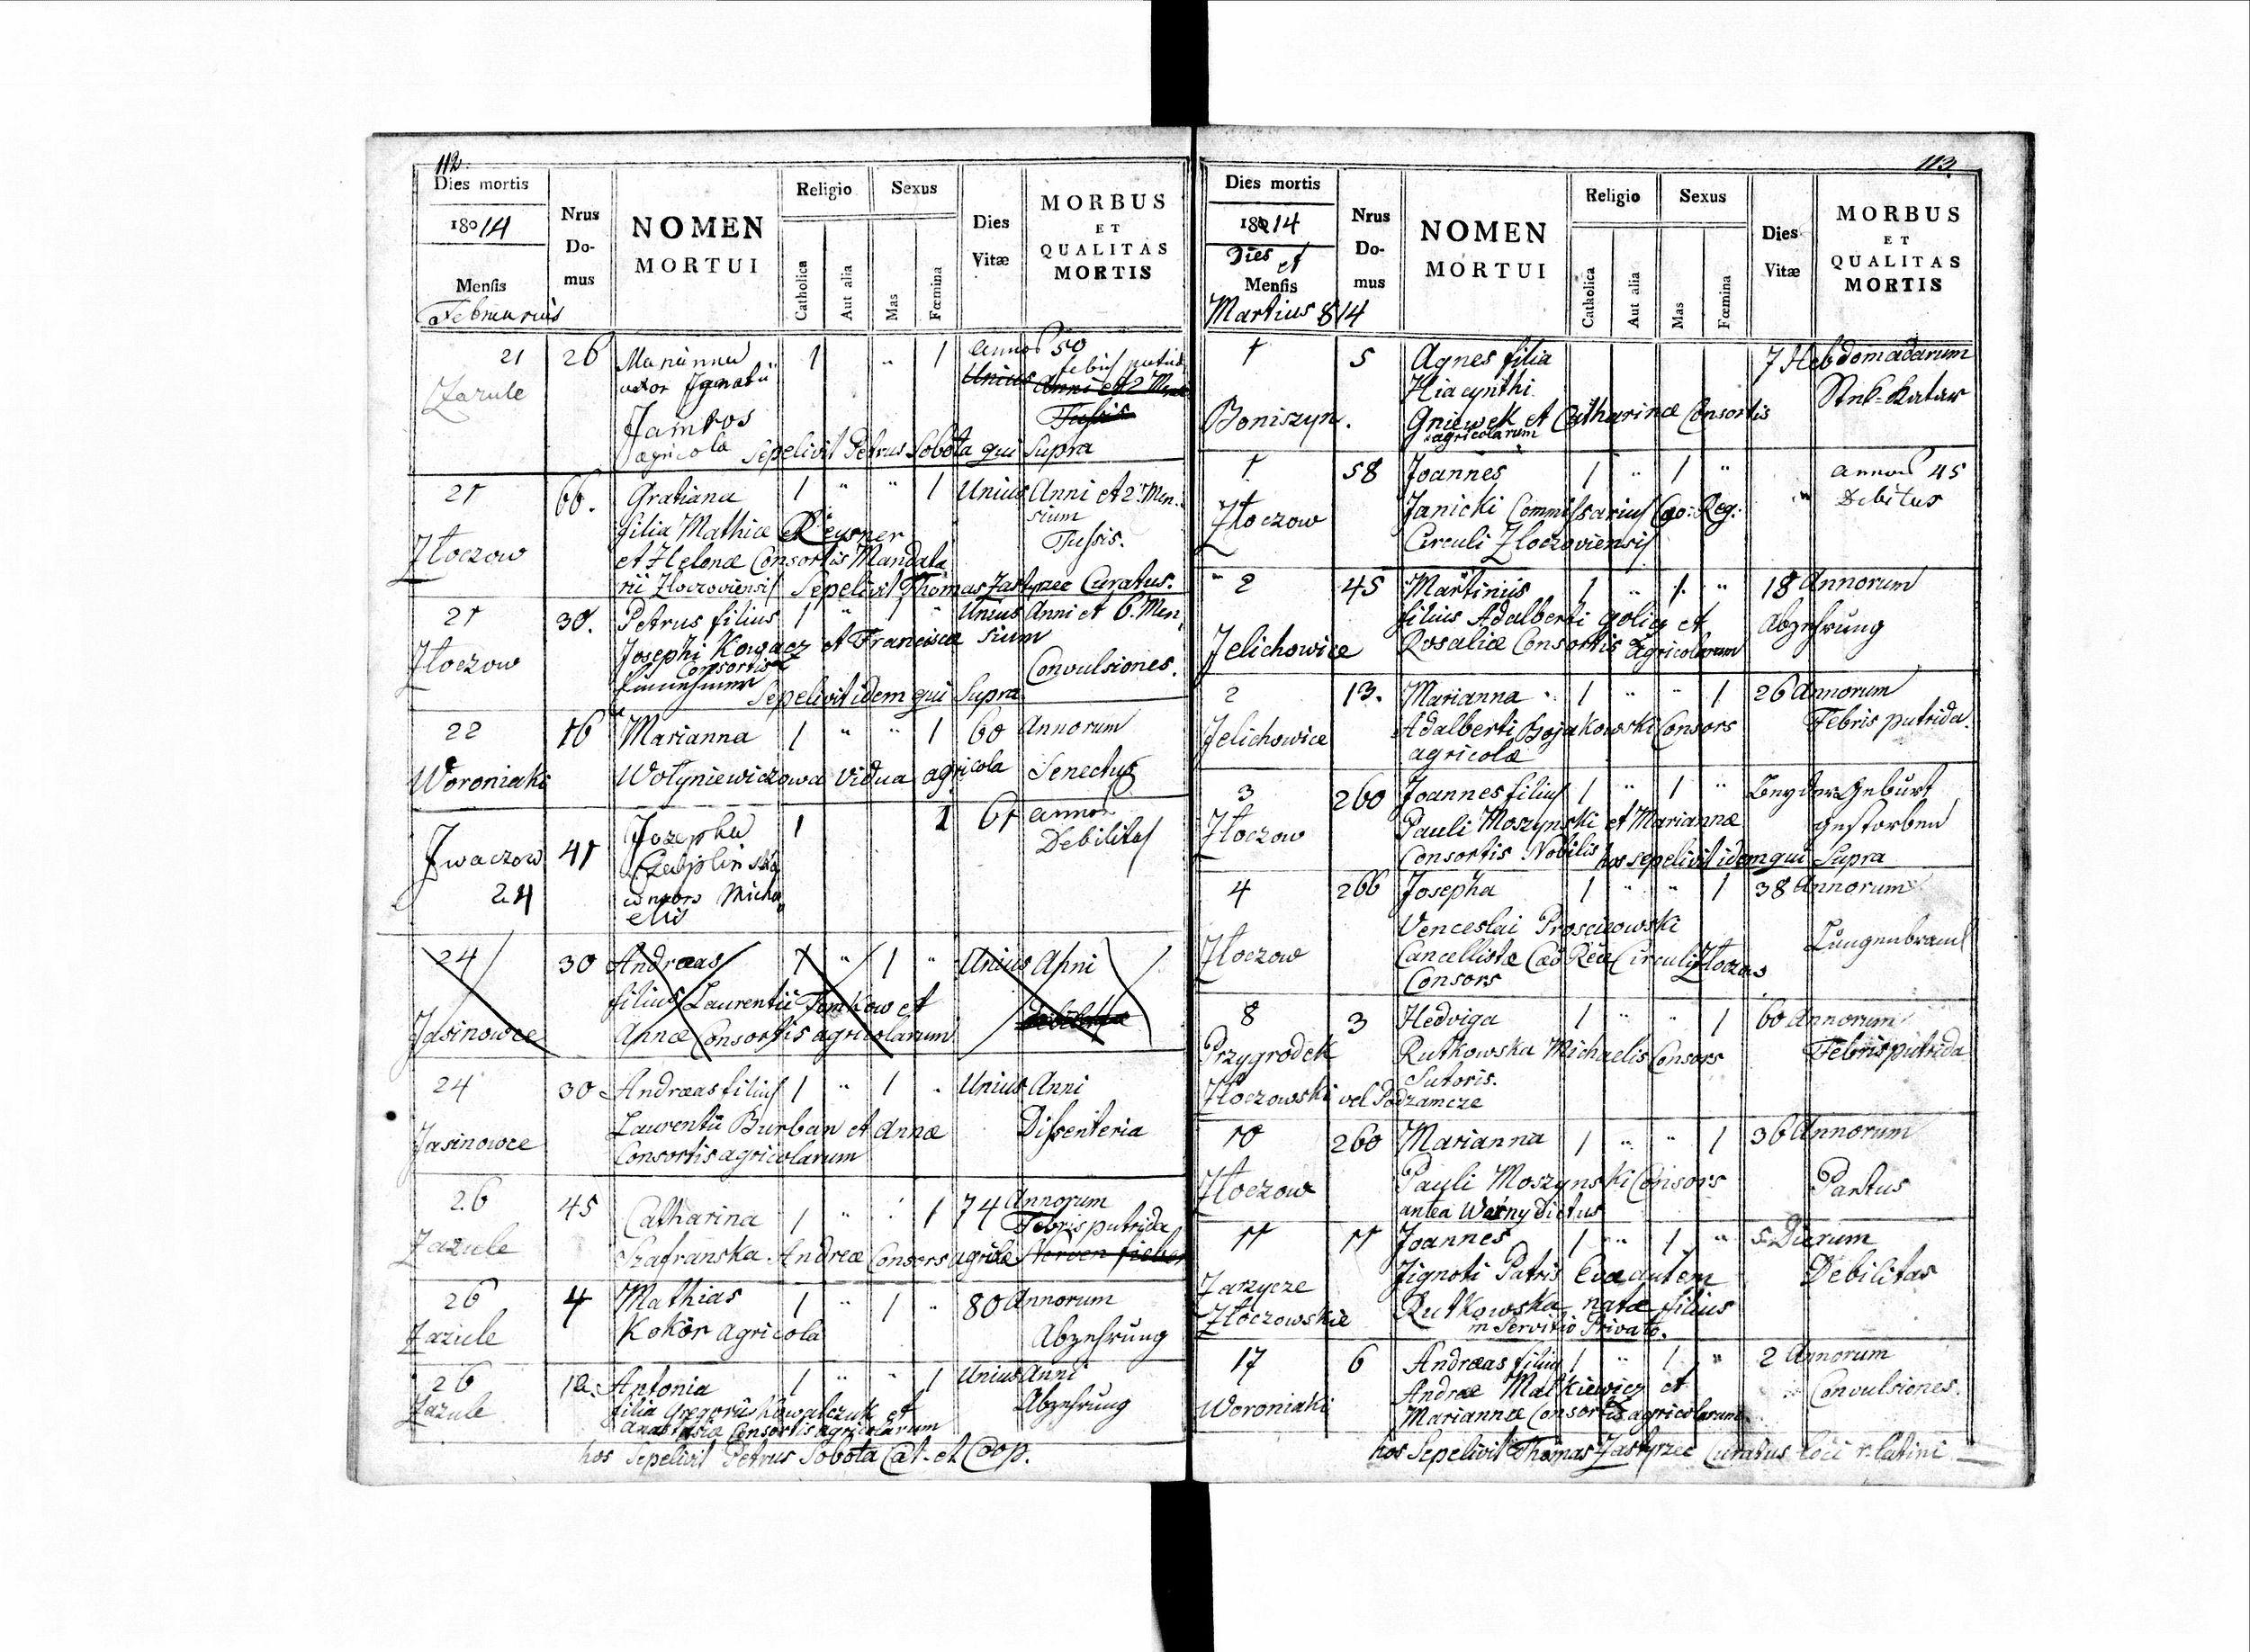 112.
Dies mortis
Nrus
Do-
mus
NOMEN
MORTUI
Religio
Sexus
Dies
Vitæ
MORBUS
ET
QUALITAS
MORTIS
18014
Mensis
Februarius
Catholica
Aut alia
Mas
Fœmina
21 26 Marianna 1 " 1 annos 50
uxor Ignatii febris putrid
Zazule Unius Anni et 2 Men
Jambos Tussis
agricola Sepelivit Petrus Sobota qui Supra
21 66. Gratiana 1 " " 1 Unius Anni et 2. Men.
filia Mathiæ Reysner sium
Złoczow et Helenæ Consortis Mandata Tussis.
rii Zloczoviensis Sepelivit Thomas Zastyrzec Curatus.
21 30. Petrus filius 1 " 1 " Unius Anni et 6. Men
Josephi Kowacz et Franciscæ sium
Złoczow Consortis Convulsiones.
Sepelivit idem qui Supra
22 16 Marianna 1 " " 1 60 Annorum
Woroniaki Wołyniewiczowa vidua agricola Senectus
Jwaczow 41 Jozepha 1 1 61 annor
Debilitas
24 consors Micha
elis
24 30 Andreas 1 " 1 " Unius Anni
filius Laurentii Tomkow et
Jasinowce Annæ Consortis agricolarum
24 30 Andreas filius 1 " 1 " Unius Anni
Laurentii Burban et Annæ Dissenteria
Jasinowce Consortis agricolarum
26 45 Catharina 1 " " 1 74 Annorum
Febris putrida
Zazule Szafranska Andreæ Consors agricolæ Nerven fieber
26 4 Mathias 1 " 1 " 80 Annorum
Zazule Kokor agricola Abzehrung
26 12. Antonia 1 " " 1 Unius Anni
Zazule filia Gregorii Kowalczuk et Abzehrung
Anastasiæ Consortis agricolarum
hos Sepelivit Petrus Sobota Cat. et Coop.
113.
Dies mortis
Nrus
Do-
mus
NOMEN
MORTUI
Religio
Sexus
Dies
Vitæ
MORBUS
ET
QUALITAS
MORTIS
18014
Dies et
Mensis
Martius 814
Catholica
Aut alia
Mas
Fœmina
1 5 Agnes filia 7 Hebdomadarum
Hiacynthi Katar
Boniszyn. Gniewek et Catharinæ Consortis
agricolarum
1. 58 Joannes 1 " 1 " annos 45
Złoczow Janicki Commissarius Cæo: Reg: Debitas
Circuli Zloczoviensis
2 45 Martinus 1 " 1. " 18 Annorum
filius Adalberti Golicz et Abzehrung
Jelichowice Rosaliæ Consortis agricolarum
2 13. Marianna 1 " " 1 26 Annorum
Jelichowice Adalberti Bojakowski Consors Febris putrida.
agricolæ
3 260 Joannes filius 1 " 1 " Bey der Geburt
Złoczow Pauli Moszynski et Mariannæ gestorben
Consortis Nobilis hos sepelivit idem qui Supra
4 266 Josepha 1 " " 1 38 Annorum
Venceslai Proscurowski
Złoczow Cancellistæ Cæo Reg Circuli Złoczow Lungenbrand
Consors
8 3 Hedviga 1 " " 1 60 Annorum
Przygrodek Rutkowska Michaelis Consors Febris putrida
Sutoris.
Złoczowski vel Podzamcze
10 260 Marianna 1 " " 1 36 Annorum
Złoczow Pauli Moszynski Consors Partus
antea Warny dictus
11 11 Joannes 1 " 1 " 5 Dierum
Zarzycze Jignoti Patris Evæ autem Debilitas
Złoczowskie Rutkowska natæ filius
in Servitio Privato.
17 6 Andreas filius 1 " 1 " 2 Annorum
Andreæ Malkiewicz et Convulsiones.
Woroniaki Mariannæ Consortis agricolarum
hos Sepelivit Thomas Zastyrzec Curatus loci r. latini